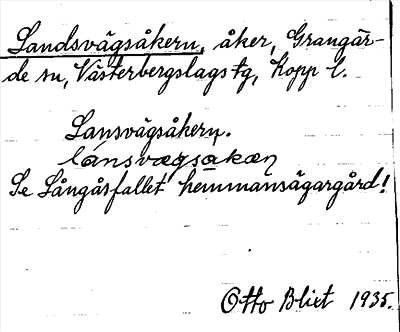 Landsvägsåkern, åker, Grangär-
de sn, Västerbergslags tg, Kopp l.
Lansvägsåkern.
lánsvægsakæn
Se Långåsfallet hemmansägargård!
Otto Blixt 1935.